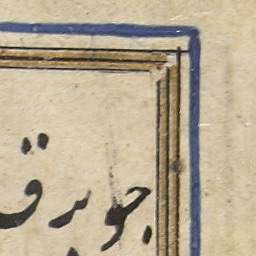 جو برق